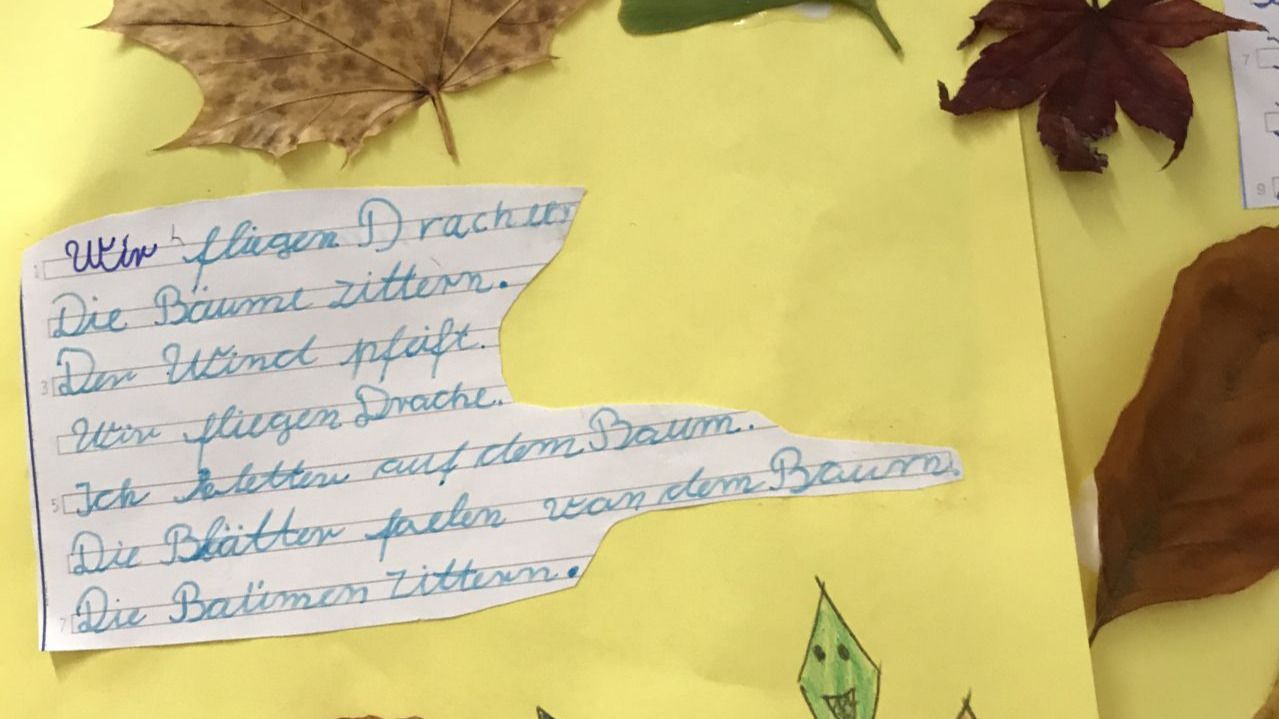 Wir fliegen Drachen
Die Bäume zittern.
Der Wind pfeift.
Wir fliegen Drache.
Ich kletter auf dem Baum.
Die Blätter faelen van dem Baum.
Die Baümen zittern.